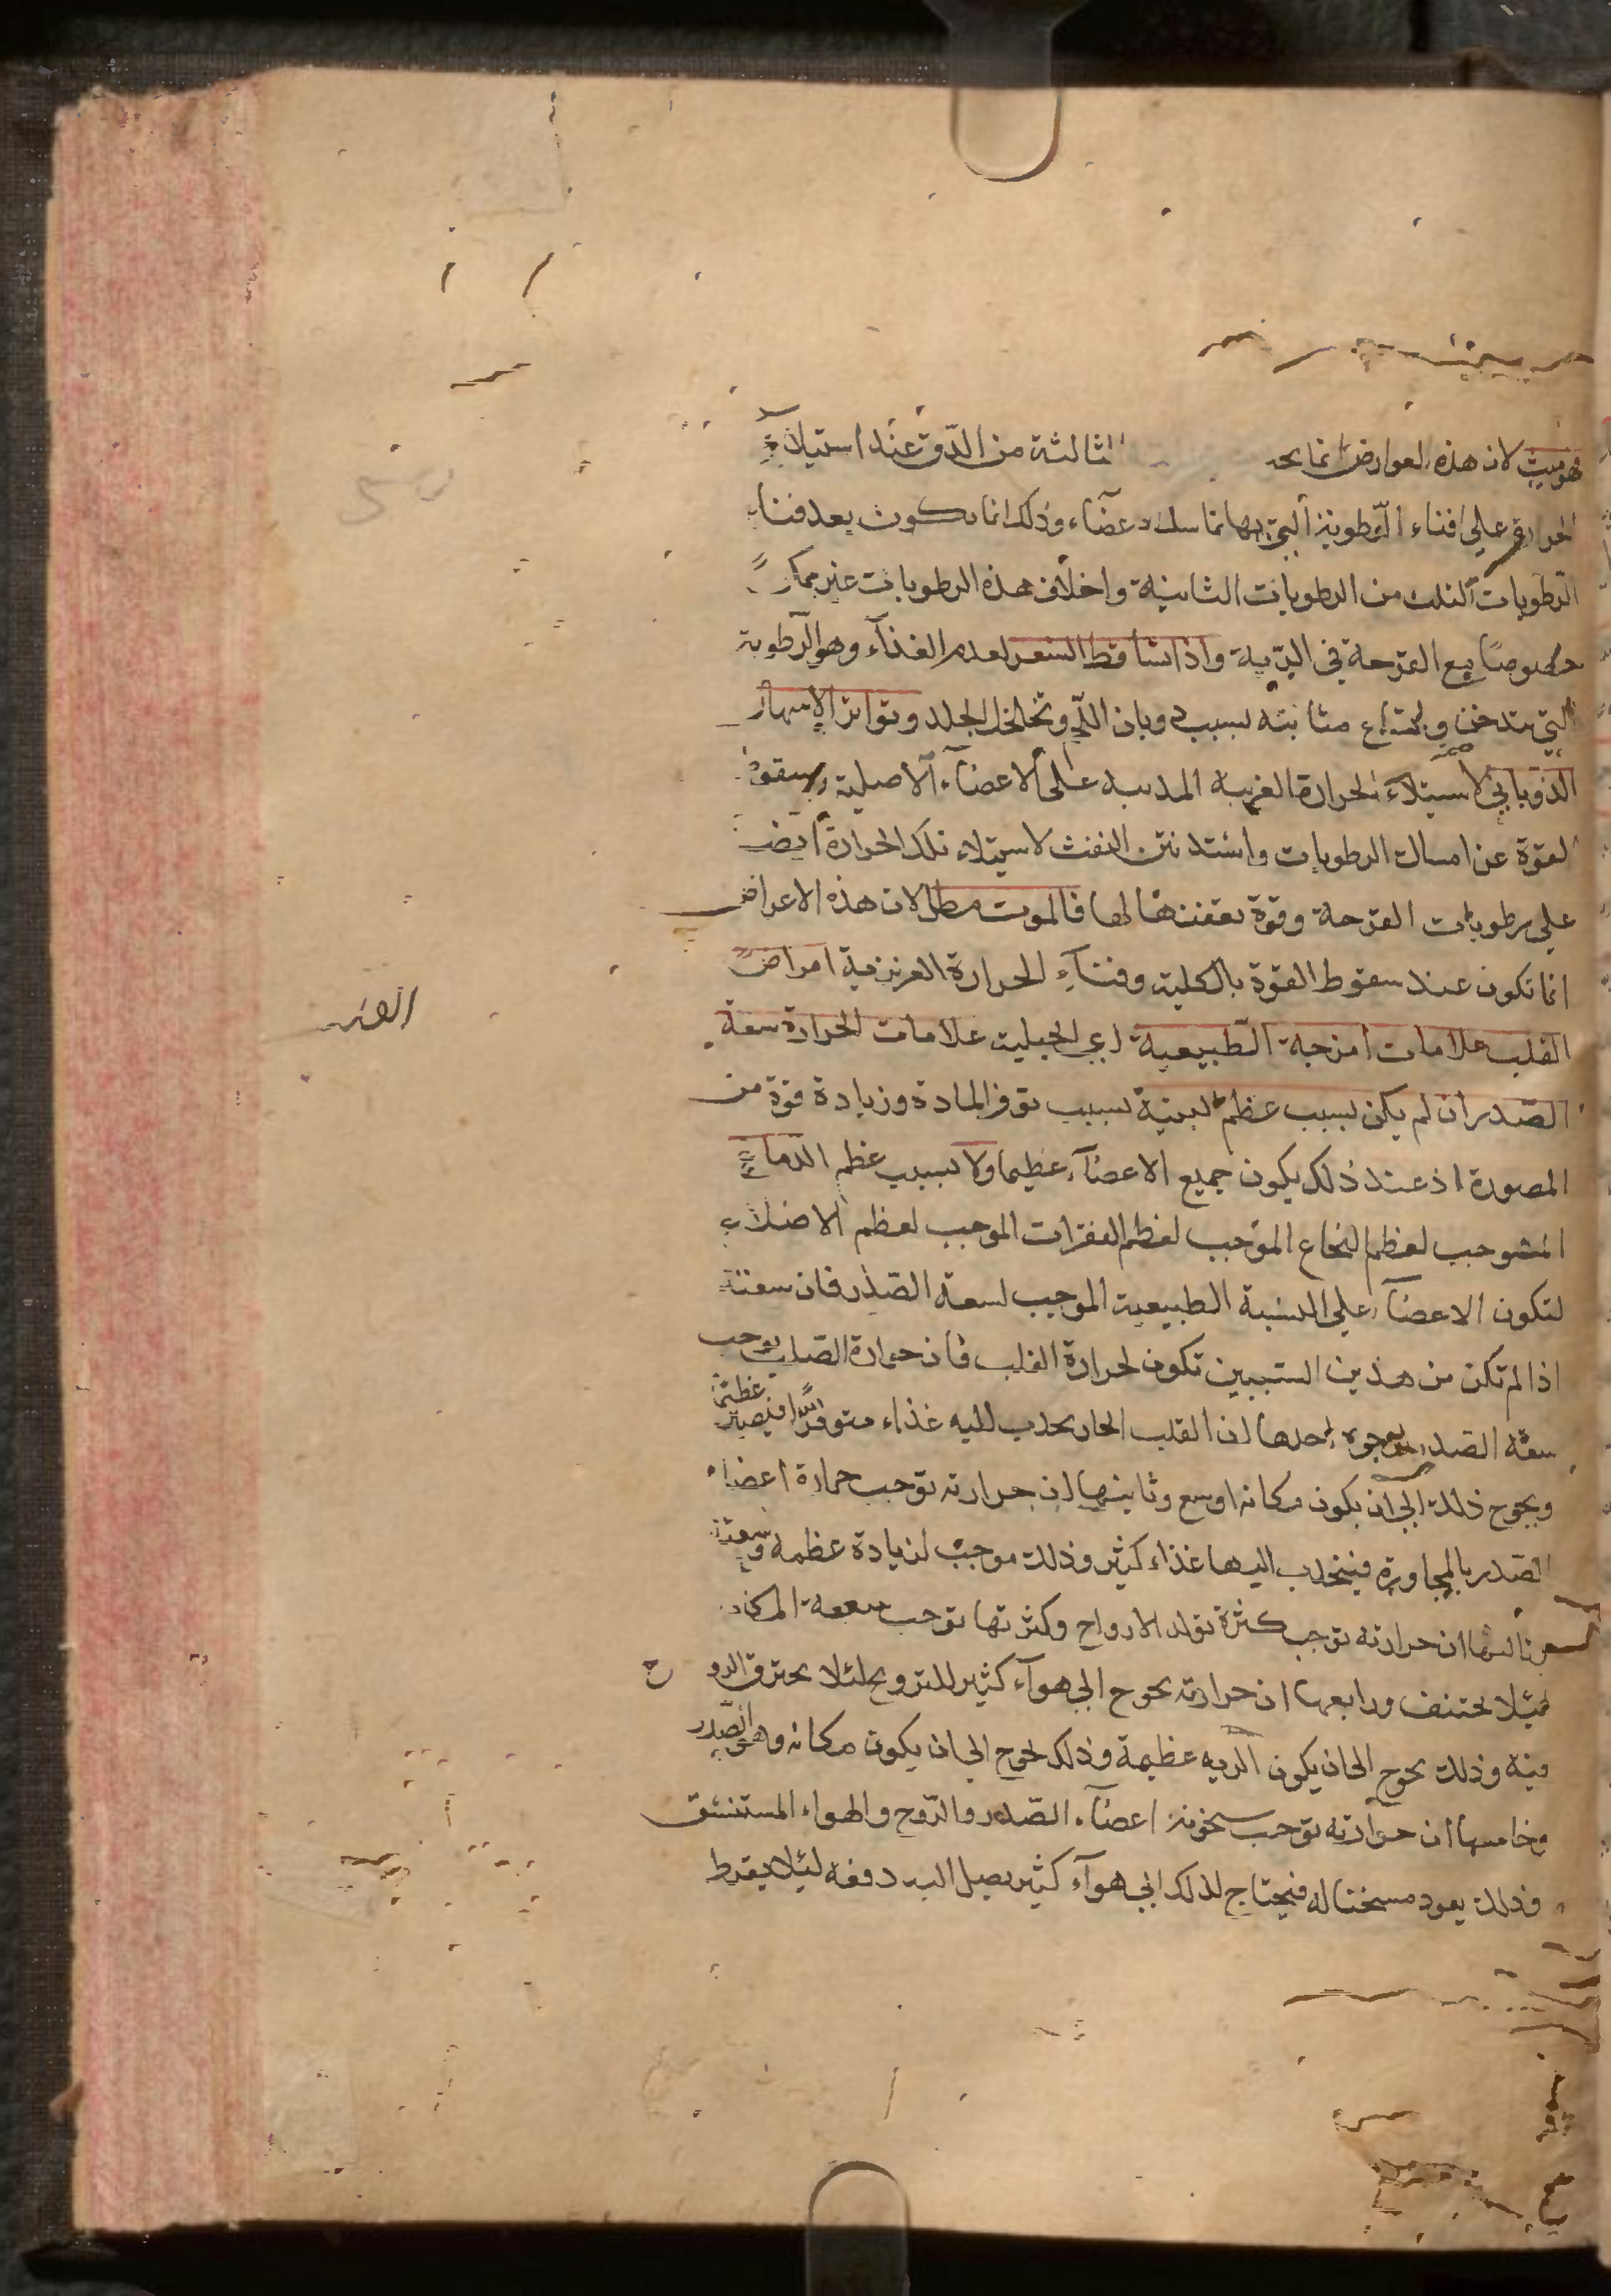 فهو ميت لان هذه العوارض انما يحد الثالثة من الدق عند استيلاء
الحرارة على افناء الرطوبة التي بها تماسك الاعضاء وذلك انما يكون بعد فناء
الرطوبات الثلث من الرطوبات الثانية واخلاف هذه الرطوبات غير ممكن
خصوصا مع القرحة في الرية واذا تساقط الشعر لعدم الغذاء وهو الرطوبة
التي تتدخن ولاتساع منابته بسبب ذوبان اللحم وتخلخل الجلد وتواتر الاسهال
الذوباني لاستيلاء الحرارة الغريبة المذيبة على الاعضاء الاصلية وسقوط
القوة عن امساك الرطوبات واشتد نتن النفث لاستيلاء تلك الحرارة ايضا
على رطوبات القرحة وقوة تعفنها لها فالموت مطل لان هذه الاعراض
انما تكون عند سقوط القوة بالكلية وفناء الحرارة الغريزية امراض
القلب علامات امزجة الطبيعية اي الجبلية علامات الحرارة سعة
الصدر ان لم يكن بسبب عظم البنية بسبب توفر المادة وزيادة قوة من
المصورة اذ عند ذلك يكون جميع الاعضاء عظيما ولا بسبب عظم الدماغ
الموجب لعظم النخاع الموجب لعظم الفقرات الموجب لعظم الاضلاع
لتكون الاعضاء على النسبة الطبيعية الموجب لسعة الصدر فان سعته
اذا لم تكن من هذين السببين تكون لحرارة القلب فان حرارة القلب توجب
سعة الصدر بوجوه احدها ان القلب الحار يجذب اليه غذاء متوفرا فيصير عظيما
ويحوج ذلك الى ان يكون مكانه اوسع وثانيها ان حرارته توجب حرارة اعضاء
الصدر بالمجاورة فينجذب اليها غذاء كثير وذلك موجب لزيادة عظمه وسعته
وثالثها ان حرارته توجب كثرة تولد الارواح وكثرتها توجب سعة المكان
لئلا يختنق ورابعها ان حرارته يحوج الى هواء كثير للترويح لئلا يحترق الروح
منه وذلك يحوج الى ان يكون الريه عظيمة وذلك يحوج الى ان يكون مكانه وهو الصدر
وخامسها ان حرارته توجب سخونة اعضاء الصدر والروح والهواء المستنشق
وذلك يعود مسخنا له فيحتاج لذلك الى هواء كثير يصل اليه دفعة لئلا يفرط